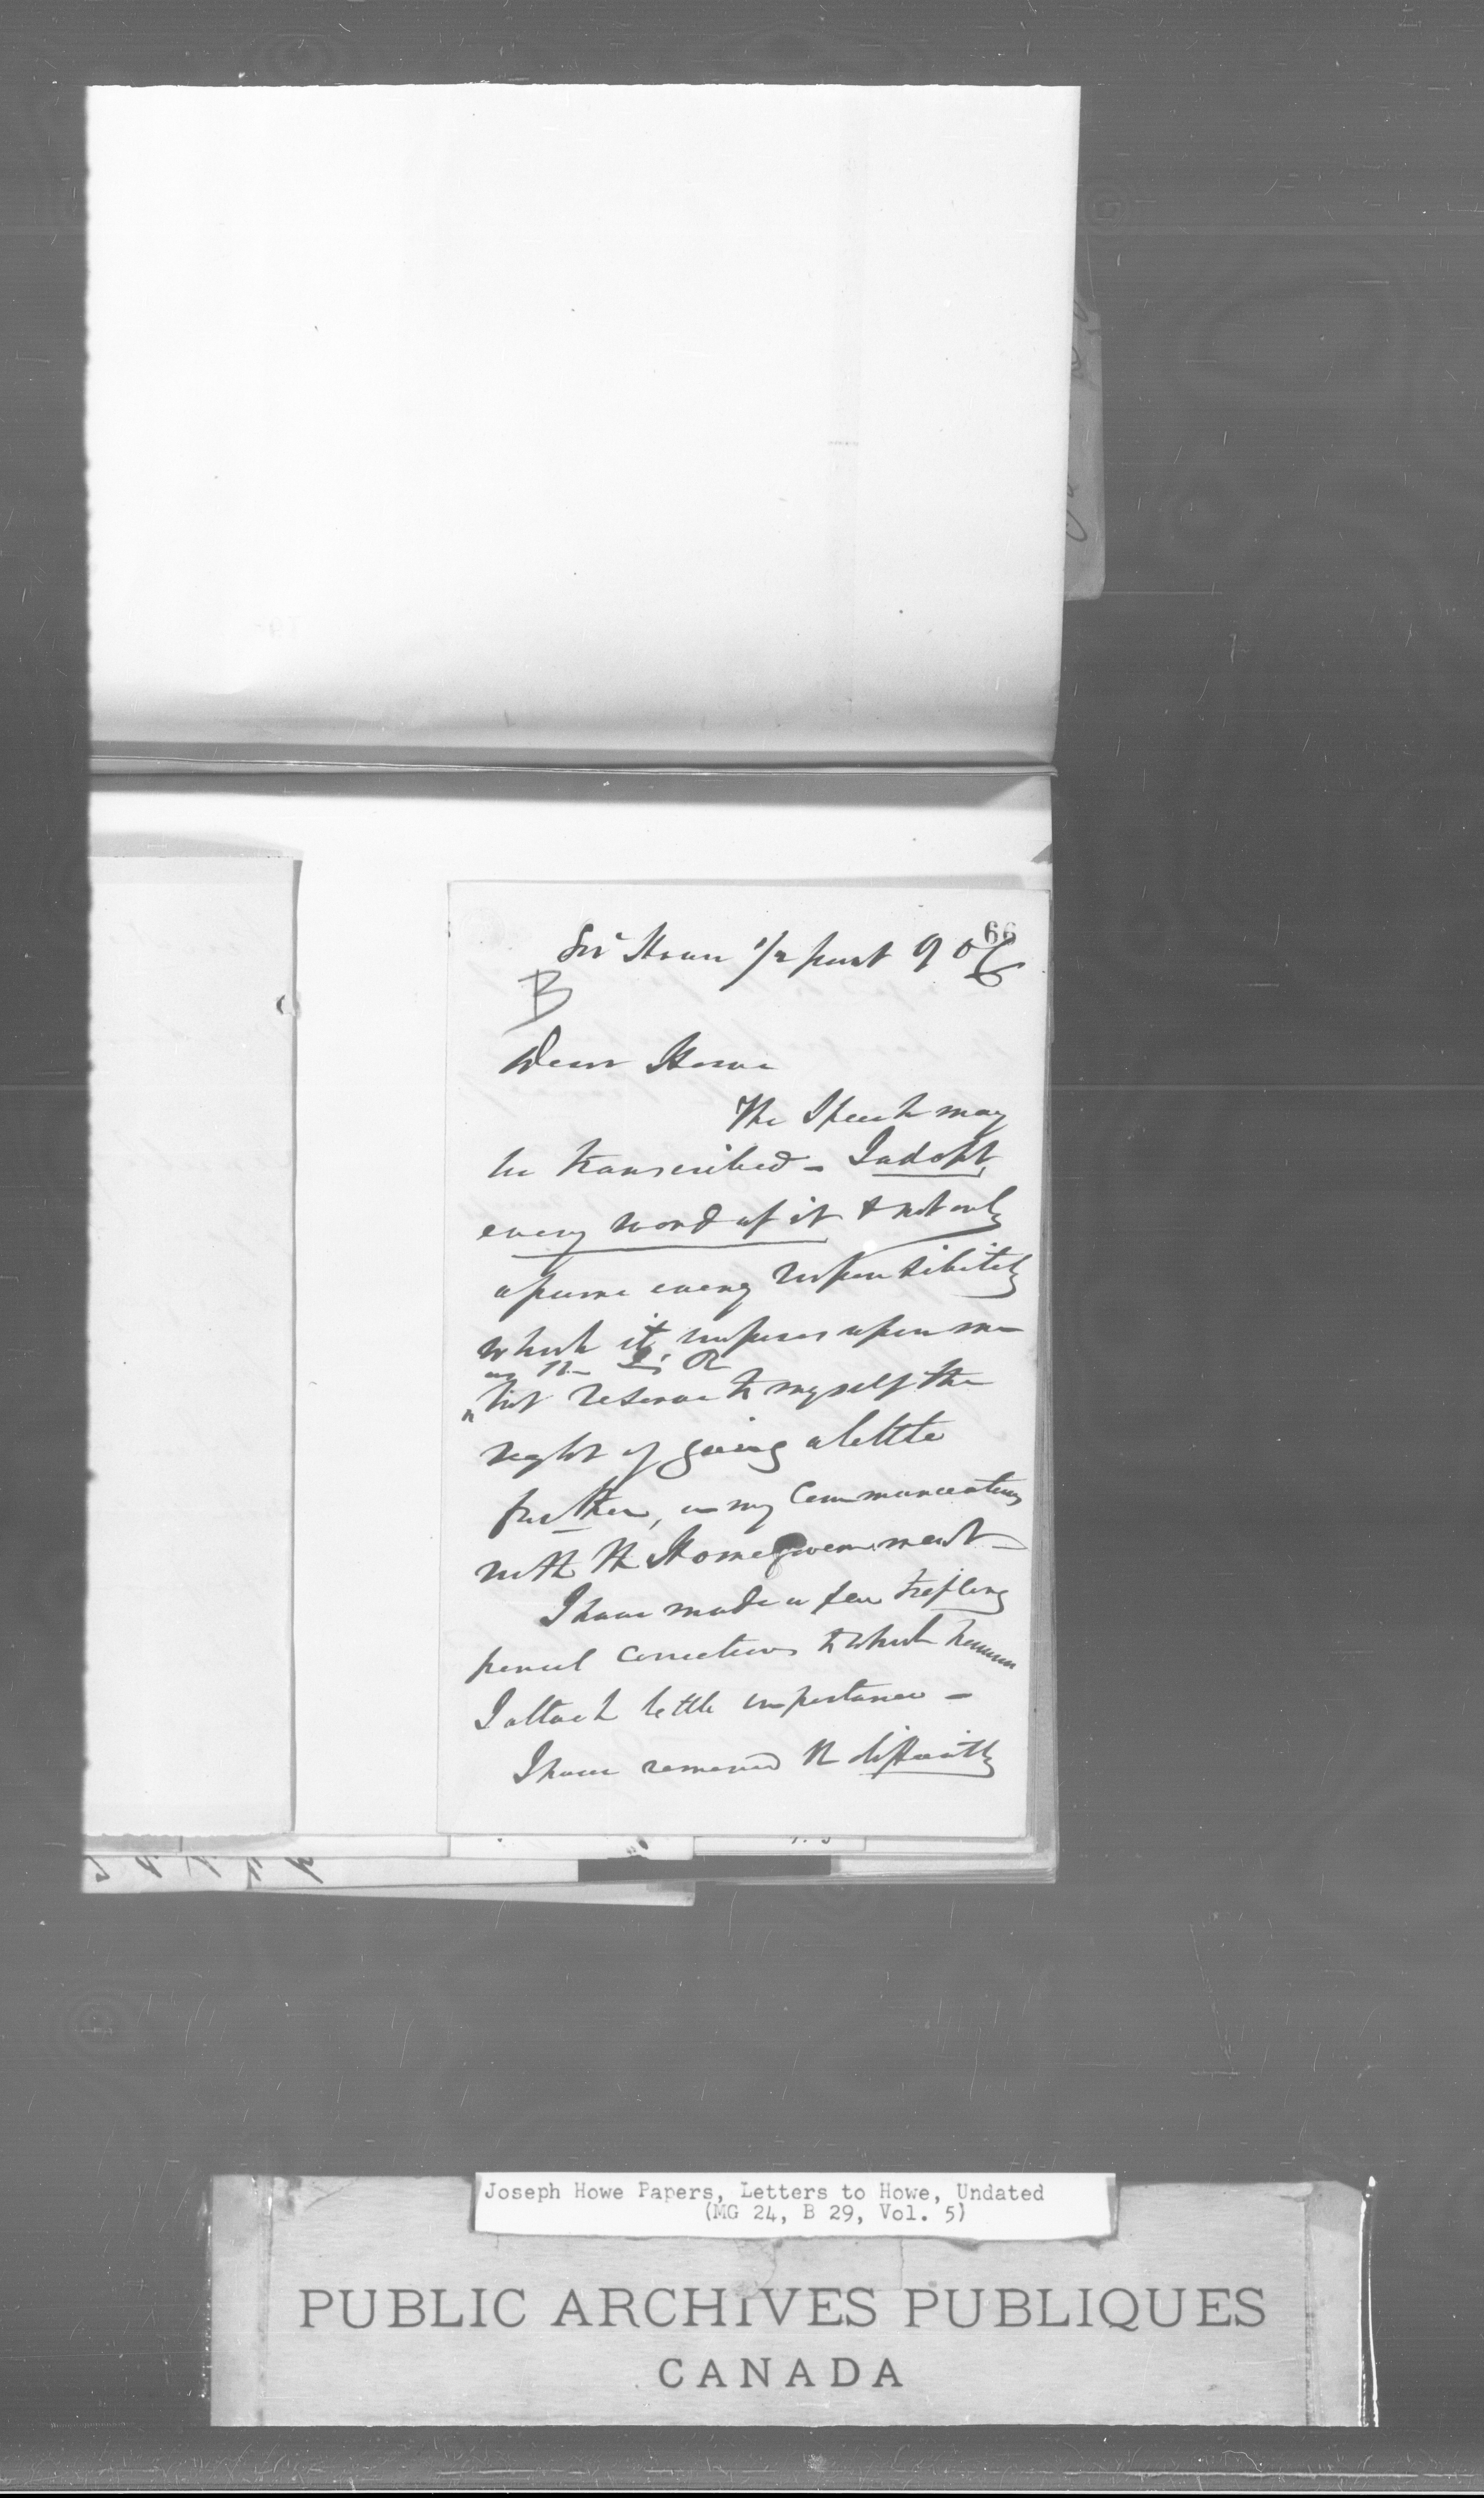 66
Gov^t House 1/2 past 9 oC
B
Dear Howe
The Speech may
be transcribed - I adopt
every word of it & not only
assume every responsibility
which it imposes upon me
as the
but reserve to myself the
right of going a little
further, in my Communications
with the Home Government -
I have made a few trifling
pencil corrections to which however
I attach little importance -
I have removed the difficulty
Joseph Howe Papers, Letters to Howe, Undated
(MG 24, B 29, Vol. 5)
PUBLIC ARCHIVES PUBLIQUES
CANADA